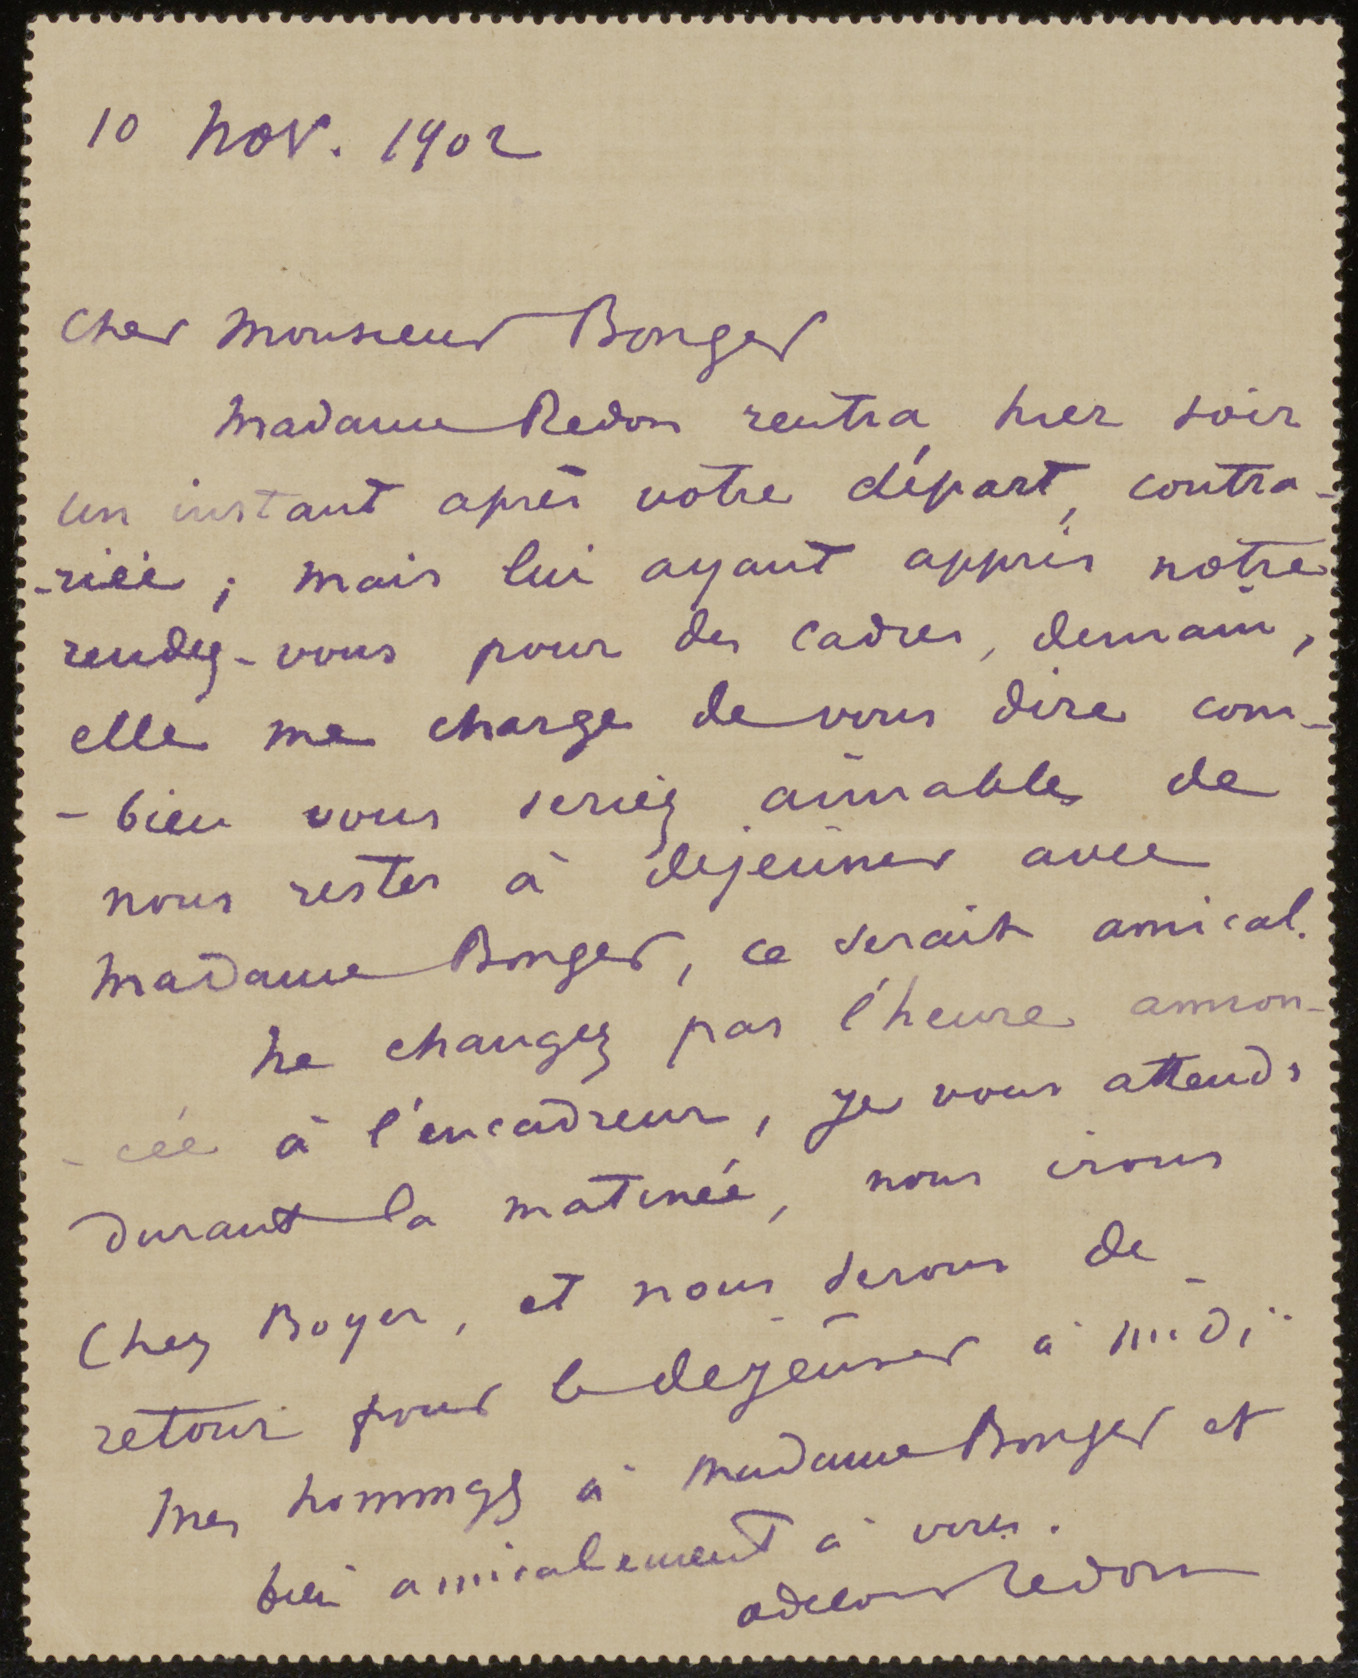 10 Nov. 1902
Cher Monsieur Bonger
Madame Redon rentra hier soir
un instant après votre départ, contra-
-riée ; mais lui ayant appris notre
rendez-vous pour des cadres, demain,
elle me charge de vous dire com-
-bien vous seriez aimable de
nous rester à déjeuner avec
Madame Bonger, ce serait amical.
Ne changez pas l'heure annon-
-cée à l'encadreur, je vous attends
durant la matinée, nous irons
chez Boyer, et nous serons de
retour pour le déjeuner à midi.
Mes hommages à Madame Bonger et
bien amicalement à vous.
Odilon Redon